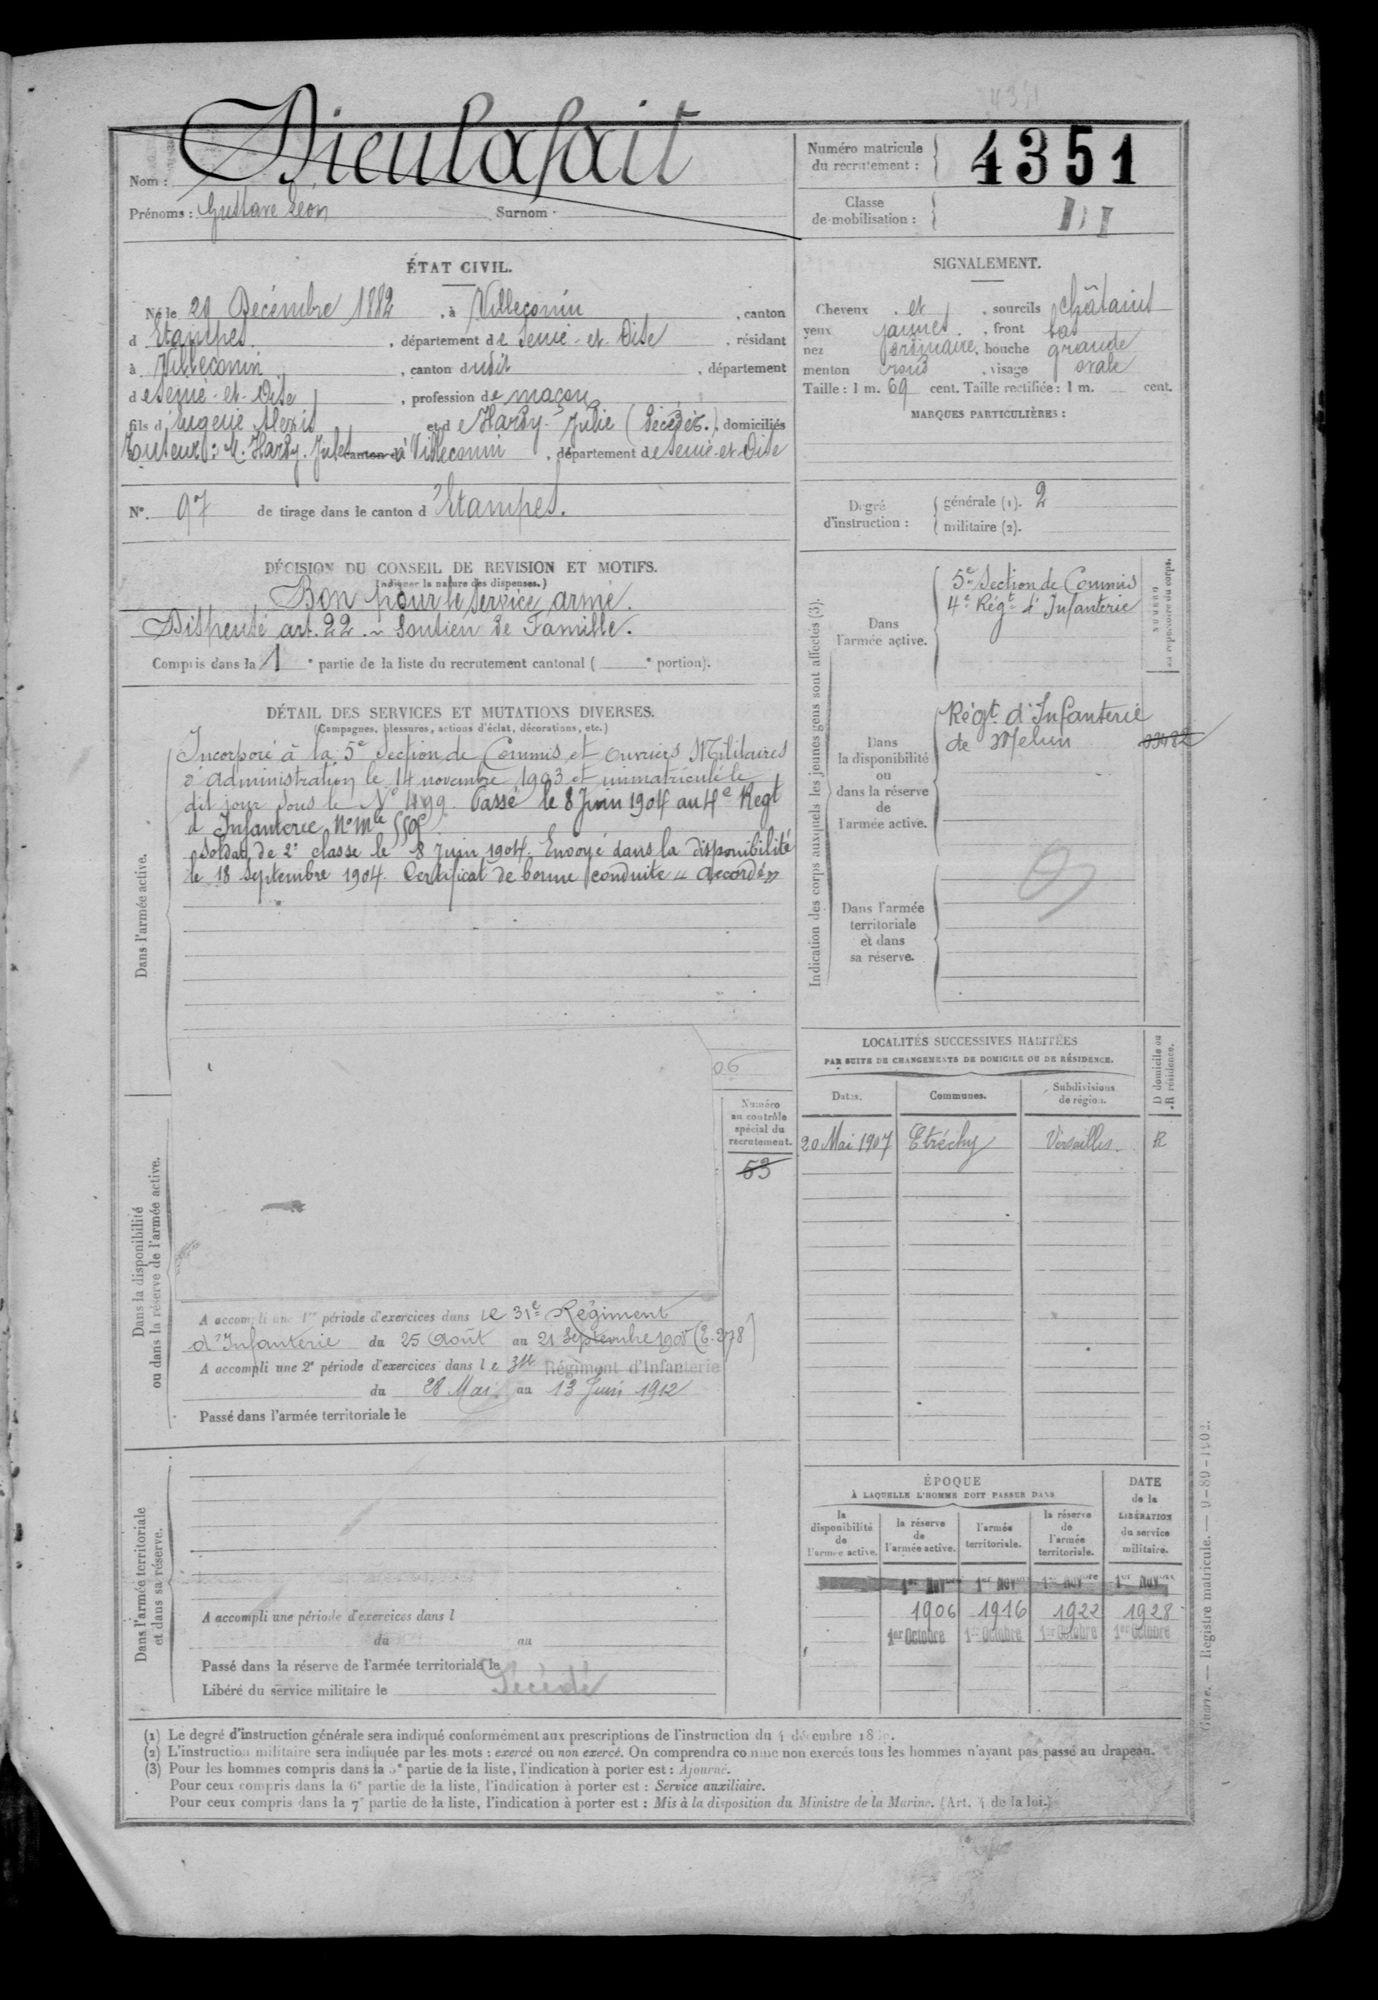 4351
Nom : Dieulafait
Prénoms : Gustave Léon Surnom
Numéro matricule du recrutement : 4351
Classe de mobilisation :
ÉTAT CIVIL.
Né le 29 Décembre 1882, à Villeconin, canton
d'Etampes, département de Seine-et-Oise, résidant
à Villeconin, canton dudit, département
de Seine-et-Oise, profession de maçon
fils d'Eugène Alexis et de Hardy Julie (Décédés.), domiciliés
Tuteur : M. Hardy. Jules canton d à Villeconin, département de Seine-et-Oise
N° 97 de tirage dans le canton d'Etampes.
SIGNALEMENT.
Cheveux et, sourcils châtains
yeux jaunes, front bas
nez ordinaire, bouche grande
menton rond, visage ovale
Taille : 1 m. 69 cent. Taille rectifiée : 1 m. cent.
MARQUES PARTICULIÈRES :
Degré d'instruction : générale (1). 2
militaire (2).
DÉCISION DU CONSEIL DE REVISION ET MOTIFS.
(Indiquer la nature des dispenses.)
Bon pour le service armé.
Dispensé art. 22. Soutien de Famille.
Compris dans la 1e partie de la liste du recrutement cantonal ( e portion).
DÉTAIL DES SERVICES ET MUTATIONS DIVERSES.
(Campagnes, blessures, actions d'éclat, décorations, etc.)
Dans l'armée active.
Incorporé à la 5e Section de Commis et Ouvriers Militaires
d'administration le 14 novembre 1903 et immatriculé le
dit jour sous le N° 4199. Passé le 8 Juin 1904 au 4e Regt
d'Infanterie N° Mle
Soldat de 2e classe le 8 Juin 1904. Envoyé dans la disponibilité
le 18 Septembre 1904. Certificat de bonne conduite "Accordé"
Indication des corps auxquels les jeunes gens sont affectés (3).
NUMÉRO au répertoire du corps.
Dans l'armée active.
5e Section de Commis
4e Régt d'Infanterie
Dans la disponibilité ou dans la réserve de l'armée active.
Régt d'Infanterie
de Melun
Dans l'armée territoriale et dans sa réserve.
LOCALITÉS SUCCESSIVES HABITÉES
PAR SUITE DE CHANGEMENTS DE DOMICILE OU DE RÉSIDENCE.
Dates. Communes. Subdivisions de région. D domicile ou R résidence.
20 Mai 1907 Etréchy Versailles R
06
Numéro au contrôle spécial du recrutement.
53
Dans la disponibilité ou dans la réserve de l'armée active.
A accompli une 1re période d'exercices dans le 31e Régiment
d'Infanterie du 25 Août au 21 Septembre 1908 (E. 278)
A accompli une 2e période d'exercices dans le 31e Régiment d'Infanterie
du 28 Mai au 13 Juin 1912
Passé dans l'armée territoriale le
Dans l'armée territoriale et dans sa réserve.
A accompli une période d'exercices dans l
du au
Passé dans la réserve de l'armée territoriale le
Libéré du service militaire le Décédé
ÉPOQUE
À LAQUELLE L'HOMME DOIT PASSER DANS
DATE de la LIBÉRATION du service militaire.
la disponibilité de l'armée active. la réserve de l'armée active. l'armée territoriale. la réserve de l'armée territoriale.
1er Novbre 1er Novbre 1er Novbre 1er Novbre
1906 1916 1922 1928
1er Octobre 1er Octobre 1er Octobre 1er Octobre
(1) Le degré d'instruction générale sera indiqué conformément aux prescriptions de l'instruction du 4 décembre
(2) L'instruction militaire sera indiquée par les mots : exercé ou non exercé. On comprendra comme non exercés tous les hommes n'ayant pas passé au drapeau.
(3) Pour les hommes compris dans la 5e partie de la liste, l'indication à porter est : Ajourné.
Pour ceux compris dans la 6e partie de la liste, l'indication à porter est : Service auxiliaire.
Pour ceux compris dans la 7e partie de la liste, l'indication à porter est : Mis à la disposition du Ministre de la Marine. (Art. 4 de la loi.)
Guerre. — Registre matricule. — 9-89-1902.